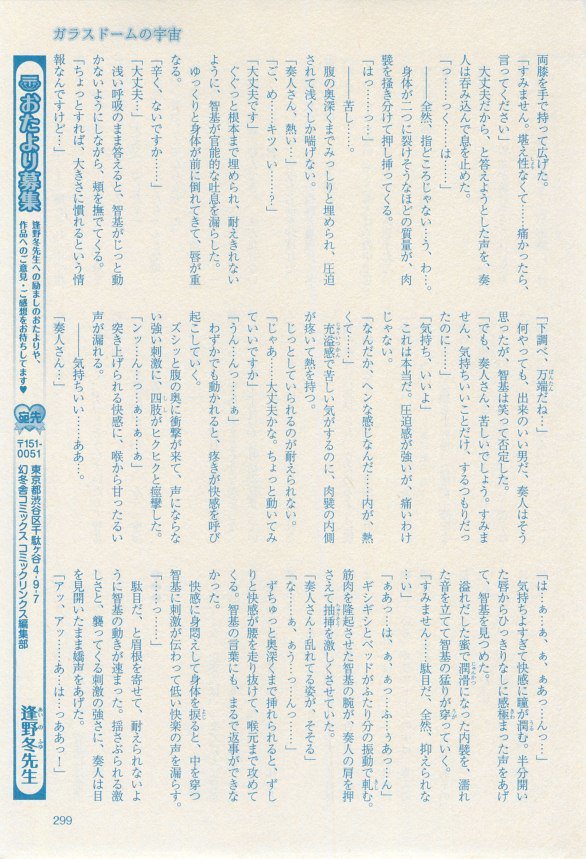 ガラスドームの宇宙
両膝を手で持って広げた。
「すみません。堪え性なくて……痛かったら、
言ってください」
大丈夫だから、と答えようとした声を、奏
人は呑み込んで息を止めた。
「っ……っく……は……」
――全然、指どころじゃない…う、わ…。
身体が二つに裂けそうなほどの質量が、肉
襞を掻き分けて押し挿ってくる。
「はっ……っ…」
――苦し……。
腹の奥深くまでみっしりと埋められ、圧迫
されて浅くしか喘げない。
「奏人さん、熱い…」
「ご、め……キツ、い……?」
「大丈夫です」
ぐぐっと根本まで埋められ、耐えきれない
ように、智基が官能的な吐息を漏らした。
ゆっくりと身体が前に倒れてきて、唇が重
なる。
「辛く、ないですか……」
「大丈夫…」
浅い呼吸のまま答えると、智基がじっと動
かないようにしながら、頬を撫でてくる。
「ちょっとすれば、大きさに慣れるという情
報なんですけど…」
「下調べ、万端だね…」
何やっても、出来のいい男だ、奏人はそう
思ったが、智基は笑って否定した。
「でも、奏人さん、苦しいでしょう。すみま
せん、気持ちいいことだけ、するつもりだっ
たのに……」
「気持ち、いいよ」
これは本当だ。圧迫感が強いが、痛いわけ
じゃない。
「なんだか、ヘンな感じなんだ……内が、熱
くて……」
充溢感で苦しい気がするのに、肉襞の内側
が疼いて熱を持つ。
じっとしていられるのが耐えられない。
「じゃあ……大丈夫かな。ちょっと動いてみ
ていいですか」
「うん……んっ……ぁ」
わずかでも動かれると、疼きが快感を呼び
起こしていく。
ズシッと腹の奥に衝撃が来て、声にならな
い強い刺激に、四肢がヒクヒクと痙攣した。
「ンッ…ん…っ…ぁ…ぁ…」
突き上げられる快感に、喉から甘ったるい
声が漏れる。
――気持ちいい……ああ…。
「奏人さん…」
「は…ぁ…ぁ、ぁ、ああっ…んっ…」
気持ちよすぎて快感に瞳が潤む。半分開い
た唇からひっきりなしに感極まった声をあげ
て、智基を見つめた。
溢れだした蜜で潤滑になった内襞を、濡れ
た音を立てて智基の猛りが穿っていく。
「すみません……駄目だ、全然、抑えられな
…い」
「ぁあっ…は、ぁ、ぁっ…ふ…ぅあっ…ん」
ギシギシとベッドがふたり分の振動で軋む。
筋肉を隆起させた智基の腕が、奏人の肩を押
さえて抽挿を激しくさせていた。
「奏人さん…乱れてる姿が、そそる…」
「な……ぁ、ぁう…っ…んっ……」
ずちゅっと奥深くまで挿れられると、ずし
りと快感が腰を走り抜けて、喉元まで攻めて
くる。智基の言葉にも、まるで返事ができな
かった。
快感に身悶えして身体を捩ると、中を穿つ
智基に刺激が伝わって低い快楽の声を漏らす。
「……っ…」
駄目だ、と眉根を寄せて、耐えられないよ
うに智基の動きが速まった。揺さぶられる激
しさと、襲ってくる刺激の強さに、奏人は目
を見開いたまま嬌声をあげた。
「アッ、アッ……あ…は…っああっ!」
おたより募集
逢野冬先生への励ましのおたよりや、
作品へのご意見・ご感想をお待ちしてます♥
宛先
〒151-0051
東京都渋谷区千駄ヶ谷4-9-7
幻冬舎コミックス コミックリンクス編集部
逢野冬先生
299